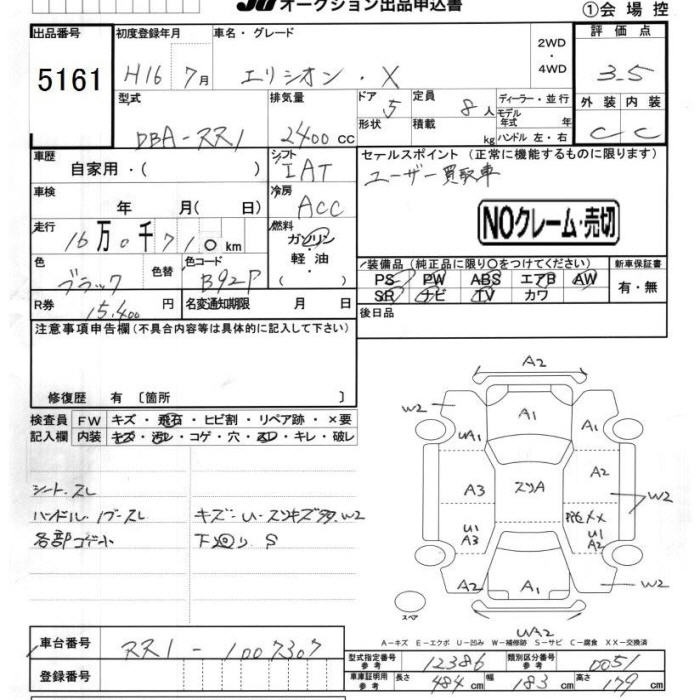 JU オークション出品申込書
①会場控
出品番号 初度登録年月 車名・グレード 評価点
5161 H16 7月 エリシオン・X 2WD・4WD 3.5
型式 排気量 ドア 5 定員 8人 ディーラー・並行 外装 内装
形状 積載 kg モデル年式 年式 ハンドル 左・右
DBA-RR1 2400cc C C
車歴 自家用・( ) シフト IAT セールスポイント (正常に機能するものに限ります)
ユーザー買取車
車検 年 月( 日) 冷房 ACC
NOクレーム・売切
走行 16万0千710km 燃料 ガソリン・軽油・( )
色 ブラック 色替 色コード B92P
装備品 (純正品に限り○をつけてください) 新車保証書
PS PW ABS エアB AW 有・無
SR ナビ TV カワ
R券 15,400円 名変通知期限 月 日
後日品
注意事項申告欄 (不具合内容等は具体的に記入して下さい)
修復歴 有 [箇所 ]
検査員 FW キズ・飛石・ヒビ割・リペア跡・×要
記入欄 内装 キズ・汚レ・コゲ・穴・スレ・キレ・破レ
シート・スレ
ハンドル・ノブ・スレ キズ・U・スリキズ多 W2
各部コゲ小 下廻り S
A2
W2 A1
UA1 A1
A3 スリA A2
W2
XX
U1 A3 U1 A2
A2 A1 W2
UA2
スペア
A-キズ E-エクボ U-凹み W-補修跡 S-サビ C-腐食 XX-交換済
車台番号 RR1-1007307
型式指定番号 参考 12386 類別区分番号 参考 0051
登録番号
車庫証明用 参考 長さ 484cm 幅 183cm 高さ 179cm